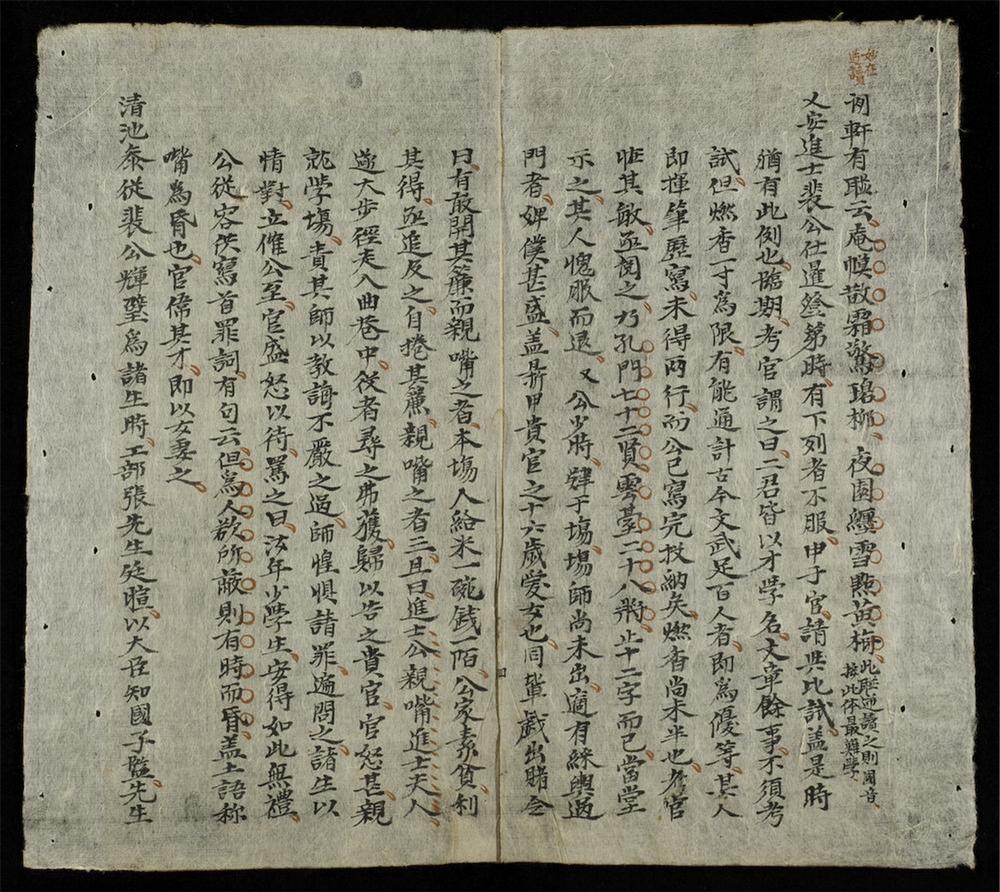 妙在
逆讀
軒有聯云庵幌散霜驚珀柳夜園纏雪點黃梅此聯逆讀之則國音
按此体最難學
又安進士裴公仕暹登第時有下列者不服申子官請共比試盖是時
猶有此例也臨期考官謂之曰二君皆以才學名文章餘事不須考
試但燃香一寸為限有能通計古今文武足百人者即為優等其人
即揮筆歷寫未得兩行而公已寫完投納矣燃香尚未半也考官
怔其敏亟閱之乃孔門七十二賢雲臺二十八將止十二字而已當堂
示之其人愧服而退又公少時肄于塲塲師尚未出適有綵輿過
門者婢僕甚盛盖鼎甲貴官之十六歲愛女也同輩戯出賭令
曰有敢開其簾而親嘴之者本塲人給米一碗錢一陌公家素貧利
其得亟追反之自捲其簾親嘴之者三且曰進士公親嘴進士夫人
遂大步徑走入曲巷中從者尋之弗獲歸以告之貴官官怒甚親
就學塲責其師以教誨不嚴之過師惶惧請罪遍問之諸生以
情對立催公至官盛怒以待罵之曰汝年少學生安得如此無禮
公從容供寫首罪詞有句云但為人欲所蔽則有時而昏盖土語称
嘴為昏也官偉其才即以女妻之
清池叅從裴公輝璧為諸生時工部張先生廷暄以大臣知國子監先生